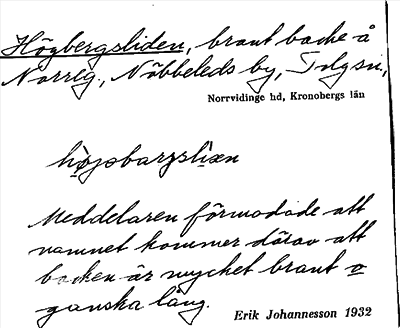 Högbergsliden, brant backe å
Norrg., Nöbbeleds by, Tolg sn,
Norrvidinge hd, Kronobergs län
Meddelaren förmodade att
namnet kommer därav att
backen är mycket brant o
ganska lång.
Erik Johannesson 1932